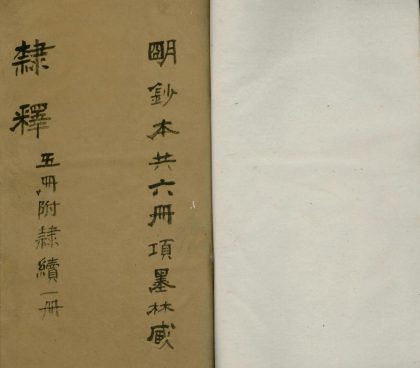 明鈔本共六冊項墨林藏
隸釋五冊附隸續一冊